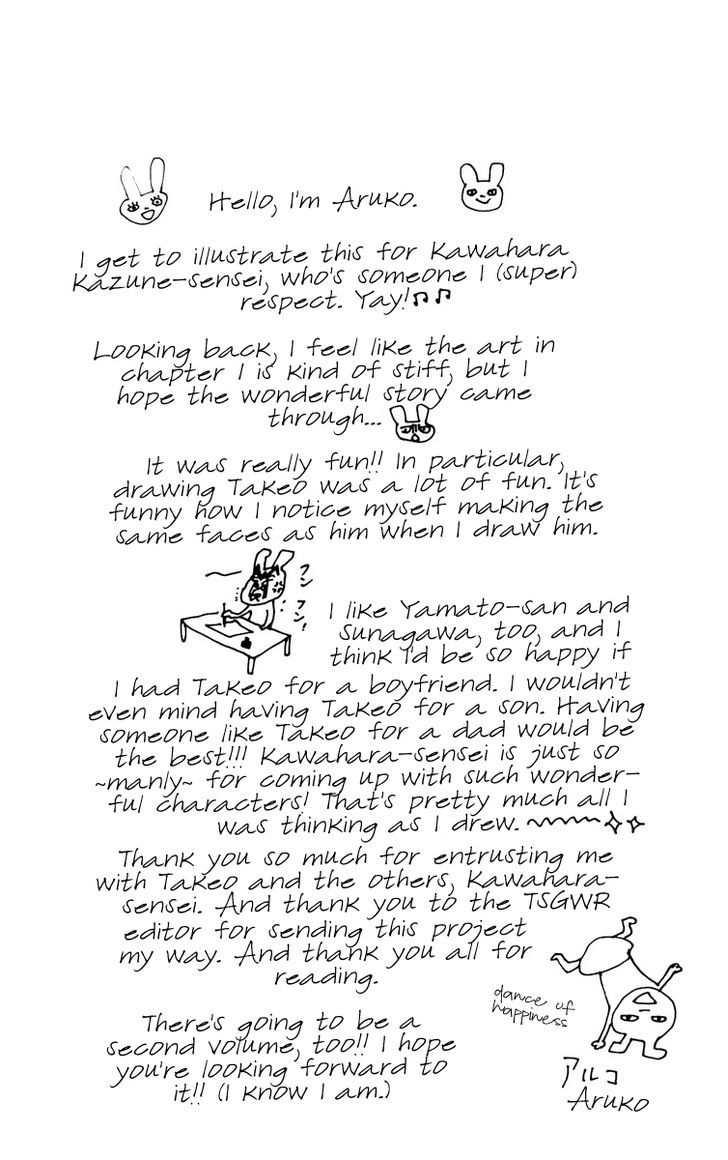 Hello, I'm Aruko.
I get to illustrate this for Kawahara
Kazune-sensei, who's someone I (super)
respect. Yay!♫♫
Looking back, I feel like the art in
chapter 1 is kind of stiff, but I
hope the wonderful story came
through...
It was really fun!! In particular,
drawing Takeo was a lot of fun. It's
funny how I notice myself making the
same faces as him when I draw him.
フン
フン!
I like Yamato-san and
Sunagawa, too, and I
think I'd be so happy if
I had Takeo for a boyfriend. I wouldn't
even mind having Takeo for a son. Having
someone like Takeo for a dad would be
the best!!! Kawahara-sensei is just so
~manly~ for coming up with such wonder-
ful characters! That's pretty much all I
was thinking as I drew.
Thank you so much for entrusting me
with Takeo and the others, Kawahara-
sensei. And thank you to the TSGWR
editor for sending this project
my way. And thank you all for
reading.
dance of
happiness
There's going to be a
second volume, too!! I hope
you're looking forward to
it!! (I know I am.)
アルコ
Aruko